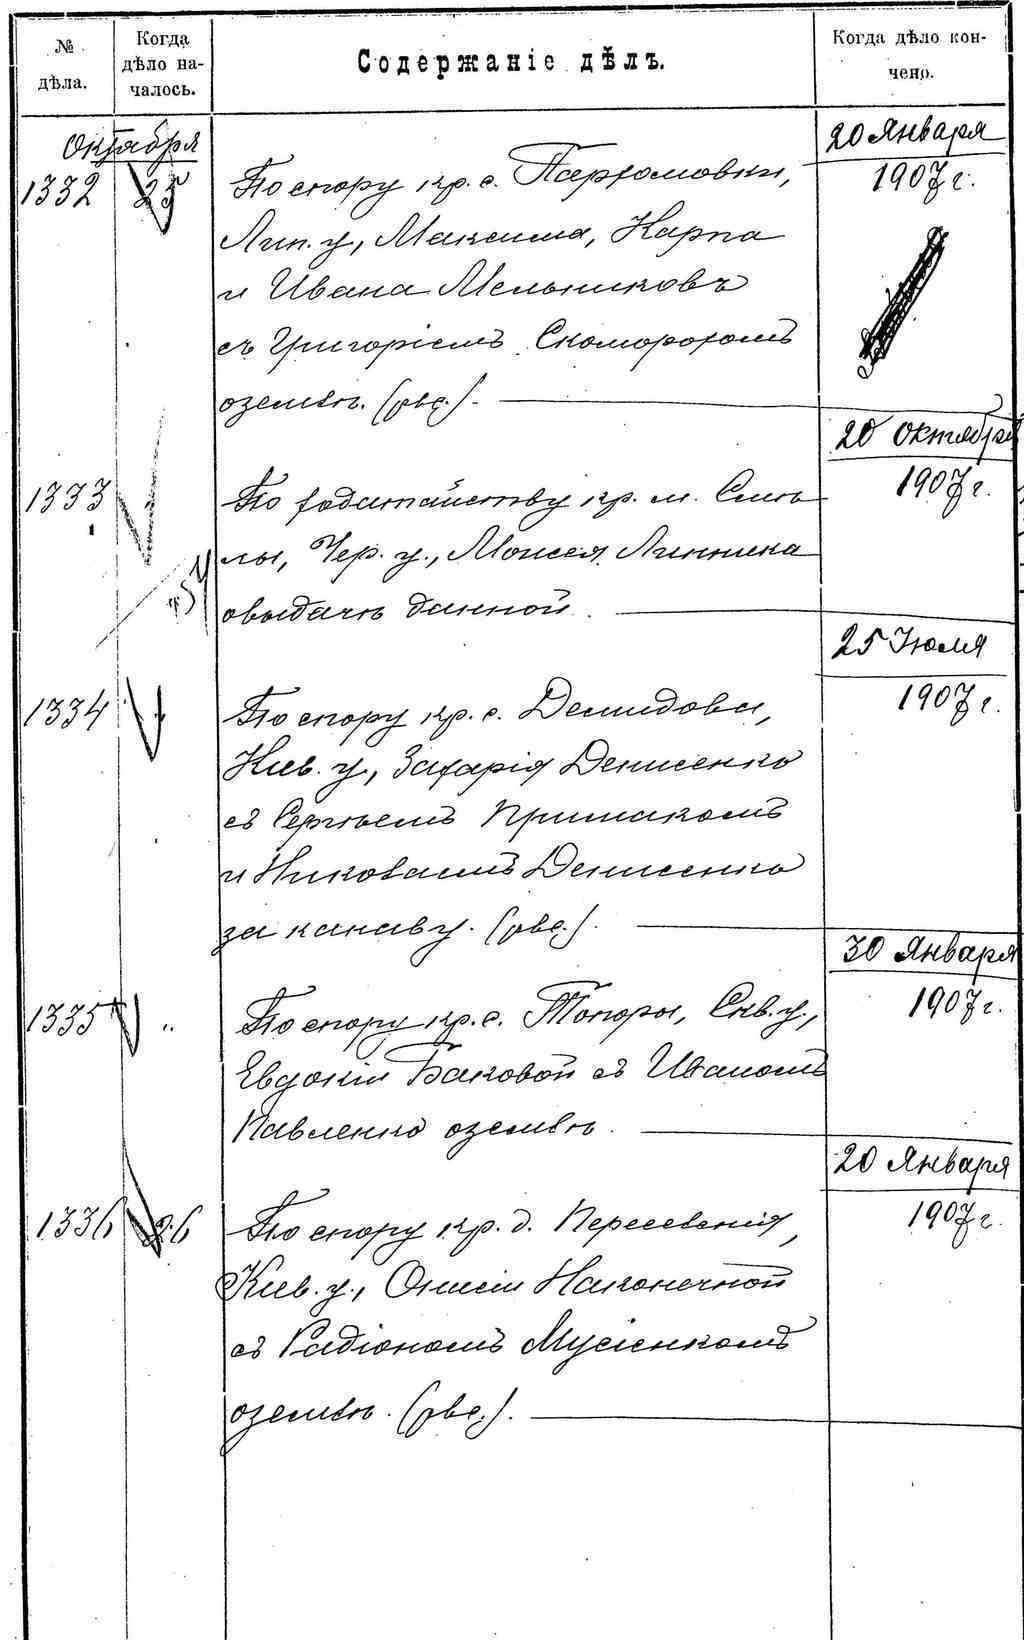 № дѣла.
Когда дѣло на-
чалось.
Содержаніе дѣлъ.
Когда дѣло кон-
чено.
Октября
20 Января
1332 25 По спору кр. с. Пархомовки, 1907 г.
Лип. у., Максима, Карпа
и Ивана Мельниковъ
съ Григоріемъ Скоморохомъ
о землѣ. (рве.).
20 Октября
1333 По ходатайству кр. м. Смѣ- 1907 г.
лы, Чер. у., Моисея Линника
о выдачѣ данной.
25 Іюля
1334 По спору кр. с. Демидова, 1907 г.
Кіев. у., Захарія Денисенко
съ Сергѣемъ Примакомъ
и Денисенко
за канаву. (рве.).
30 Января
1335 " По спору кр. с. Топоры, Скв. у., 1907 г.
Евдокіи Баковой съ Иваномъ
Павленко о землѣ.
20 Января
1336 26 По спору кр. д. Пересевенія, 1907 г.
Кіев. у., Онисіи Наконечной
съ Радіономъ Мусіенкомъ
о землѣ. (рве.).